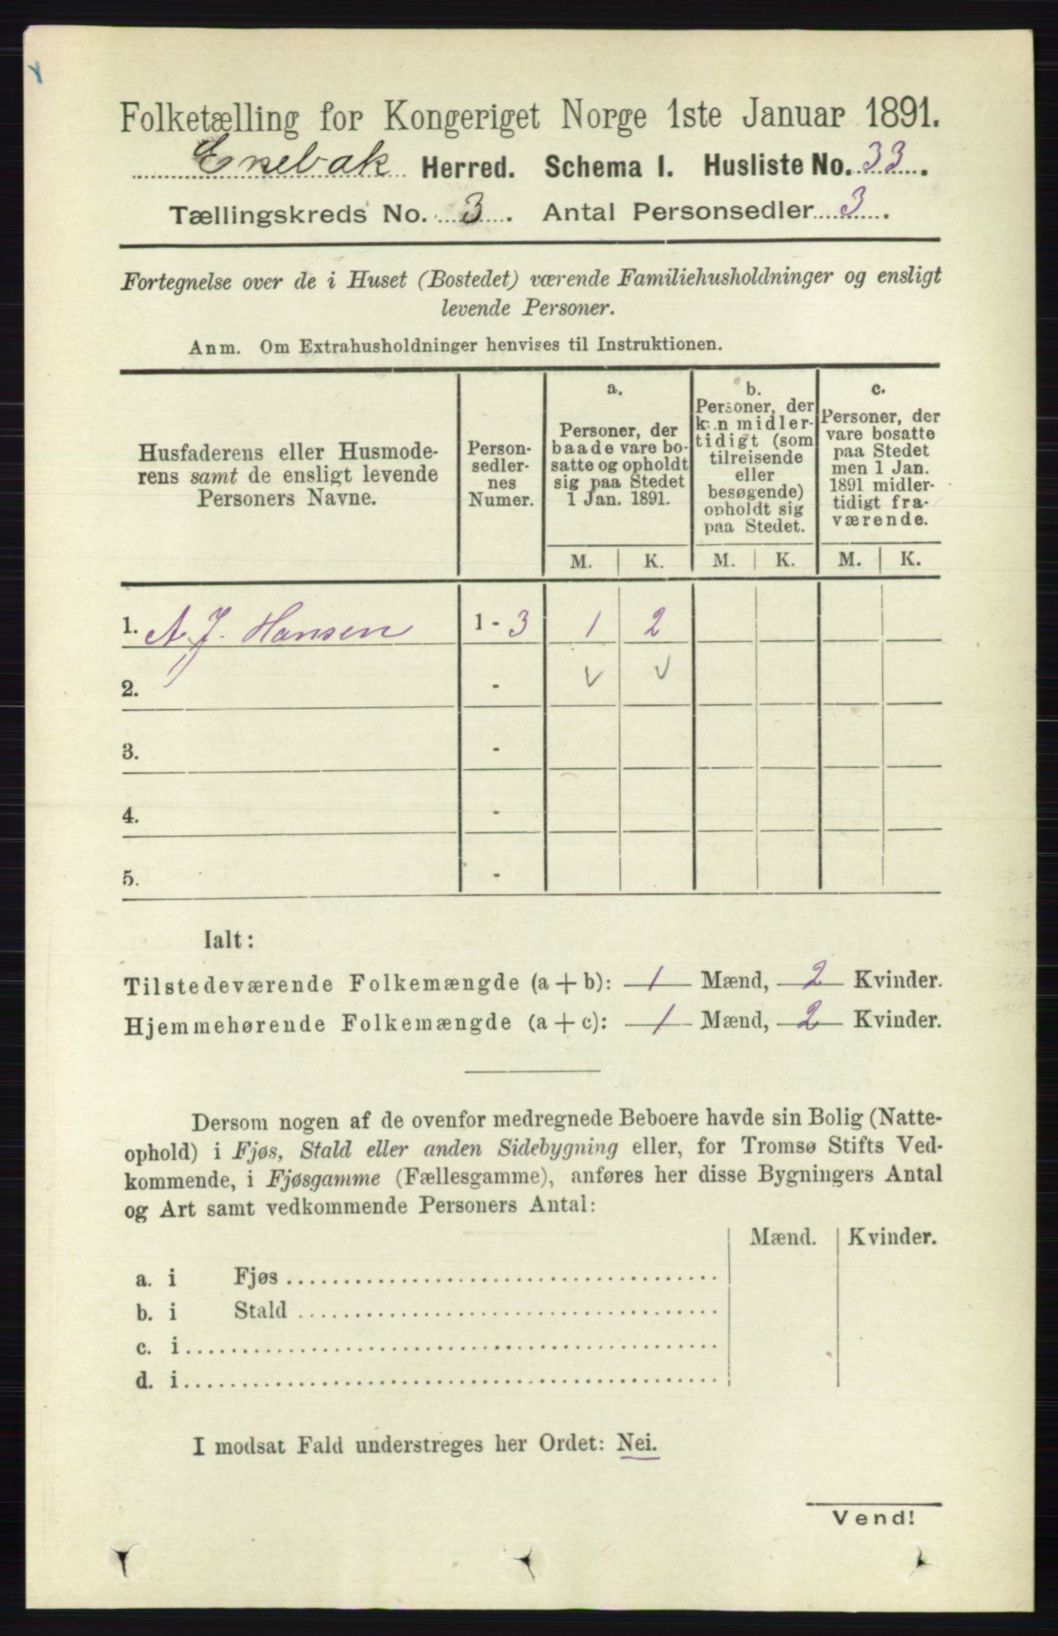 Folketælling for Kongeriget Norge 1ste Januar 1891.
Enebak Herred. Schema I. Husliste No. 33.
Tællingskreds No. 3. Antal Personsedler 3.
Fortegnelse over de i Huset (Bostedet) værende Familiehusholdninger og ensligt
levende Personer.
Anm. Om Extrahusholdninger henvises til Instruktionen.
Husfaderens eller Husmode-
rens samt de ensligt levende
Personers Navne.
Person-
sedler-
nes
Numer.
a.
Personer, der
baade vare bo-
satte og opholdt
sig paa Stedet
1 Jan. 1891.
b.
Personer, der
kun midler-
tidigt (som
tilreisende
eller
besøgende)
opholdt sig
paa Stedet.
c.
Personer, der
vare bosatte
paa Stedet
men 1 Jan.
1891 midler-
tidigt fra-
værende.
M. K. M. K. M. K.
1. A. J. Hansen 1 - 3 1 2
2. - v v
3. -
4. -
5. -
Ialt:
Tilstedeværende Folkemængde (a + b): 1 Mænd, 2 Kvinder.
Hjemmehørende Folkemængde (a + c): 1 Mænd, 2 Kvinder.
Dersom nogen af de ovenfor medregnede Beboere havde sin Bolig (Natte-
ophold) i Fjøs, Stald eller anden Sidebygning eller, for Tromsø Stifts Ved-
kommende, i Fjøsgamme (Fællesgamme), anføres her disse Bygningers Antal
og Art samt vedkommende Personers Antal:
Mænd. Kvinder.
a. i Fjøs
b. i Stald
c. i
d. i
I modsat Fald understreges her Ordet: Nei.
Vend!